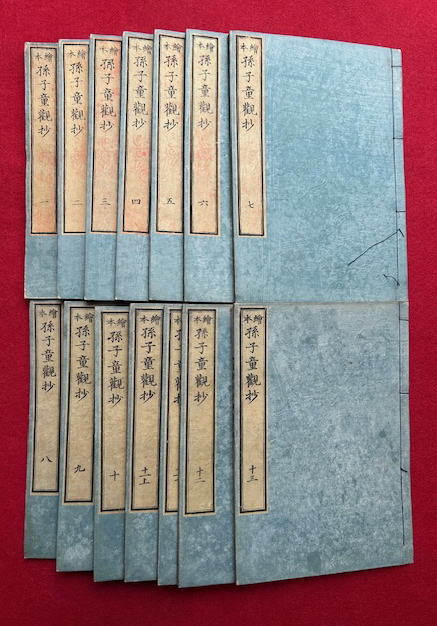 繪本
孫子童觀抄 一
繪本
孫子童觀抄 二
繪本
孫子童觀抄 三
繪本
孫子童觀抄 四
繪本
孫子童觀抄 五
繪本
孫子童觀抄 六
繪本
孫子童觀抄 七
繪本
孫子童觀抄 八
繪本
孫子童觀抄 九
繪本
孫子童觀抄 十
繪本
孫子童觀抄 十一上
繪本
孫子童觀抄 十二
繪本
孫子童觀抄 十三